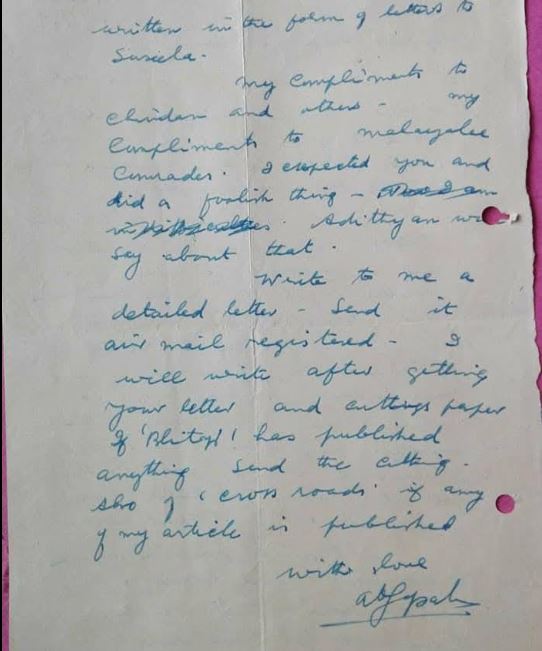 written in the form of letters to
Suseela.
my compliments to
chindan and others - my
compliments to malayalee
Comrades. I expected you and
did a foolish thing -
Adithyan w
say about that.
Write to me a
detailed letter - Send it
air mail registered - I
will write after getting
your letter and cuttings paper
If 'Blitz' has published
anything send the cutting.
Also of 'cross roads' if any
of my article is published
with love